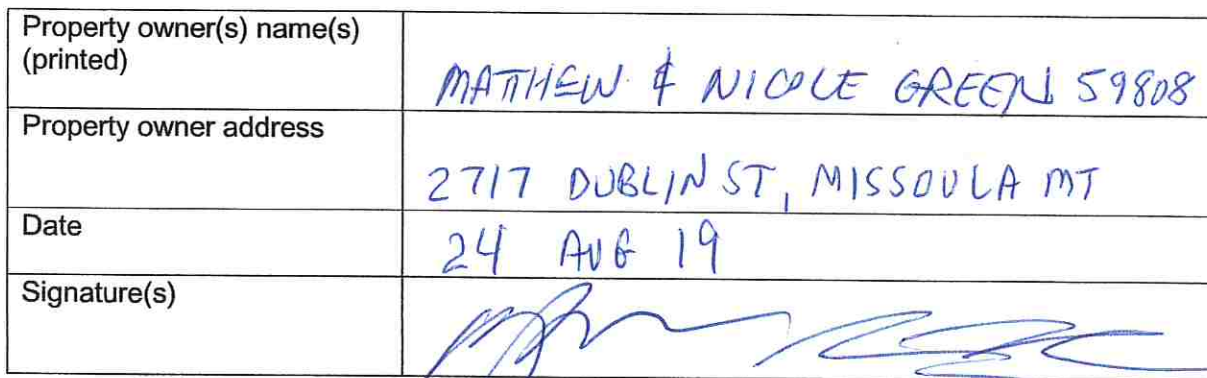 Property owner(s) name(s)
(printed)
MATTHEW & NICOLE GREEN 59808
Property owner address
2717 DUBLIN ST, MISSOULA MT
Date
24 AUG 19
Signature(s)